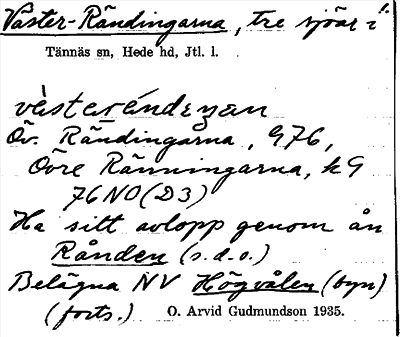 Väster-Rändingarna, tre sjöar i
Tännäs sn, Hede hd, Jtl. l.
Öv. Rändingarna, G76,
Övre Ränningarna, kG
76 NO (D3)
Ha sitt avlopp genom ån
Rånden (s.d.o.)
Belägna NV Högvålen (byn)
(forts.)
O. Arvid Gudmundson 1935.